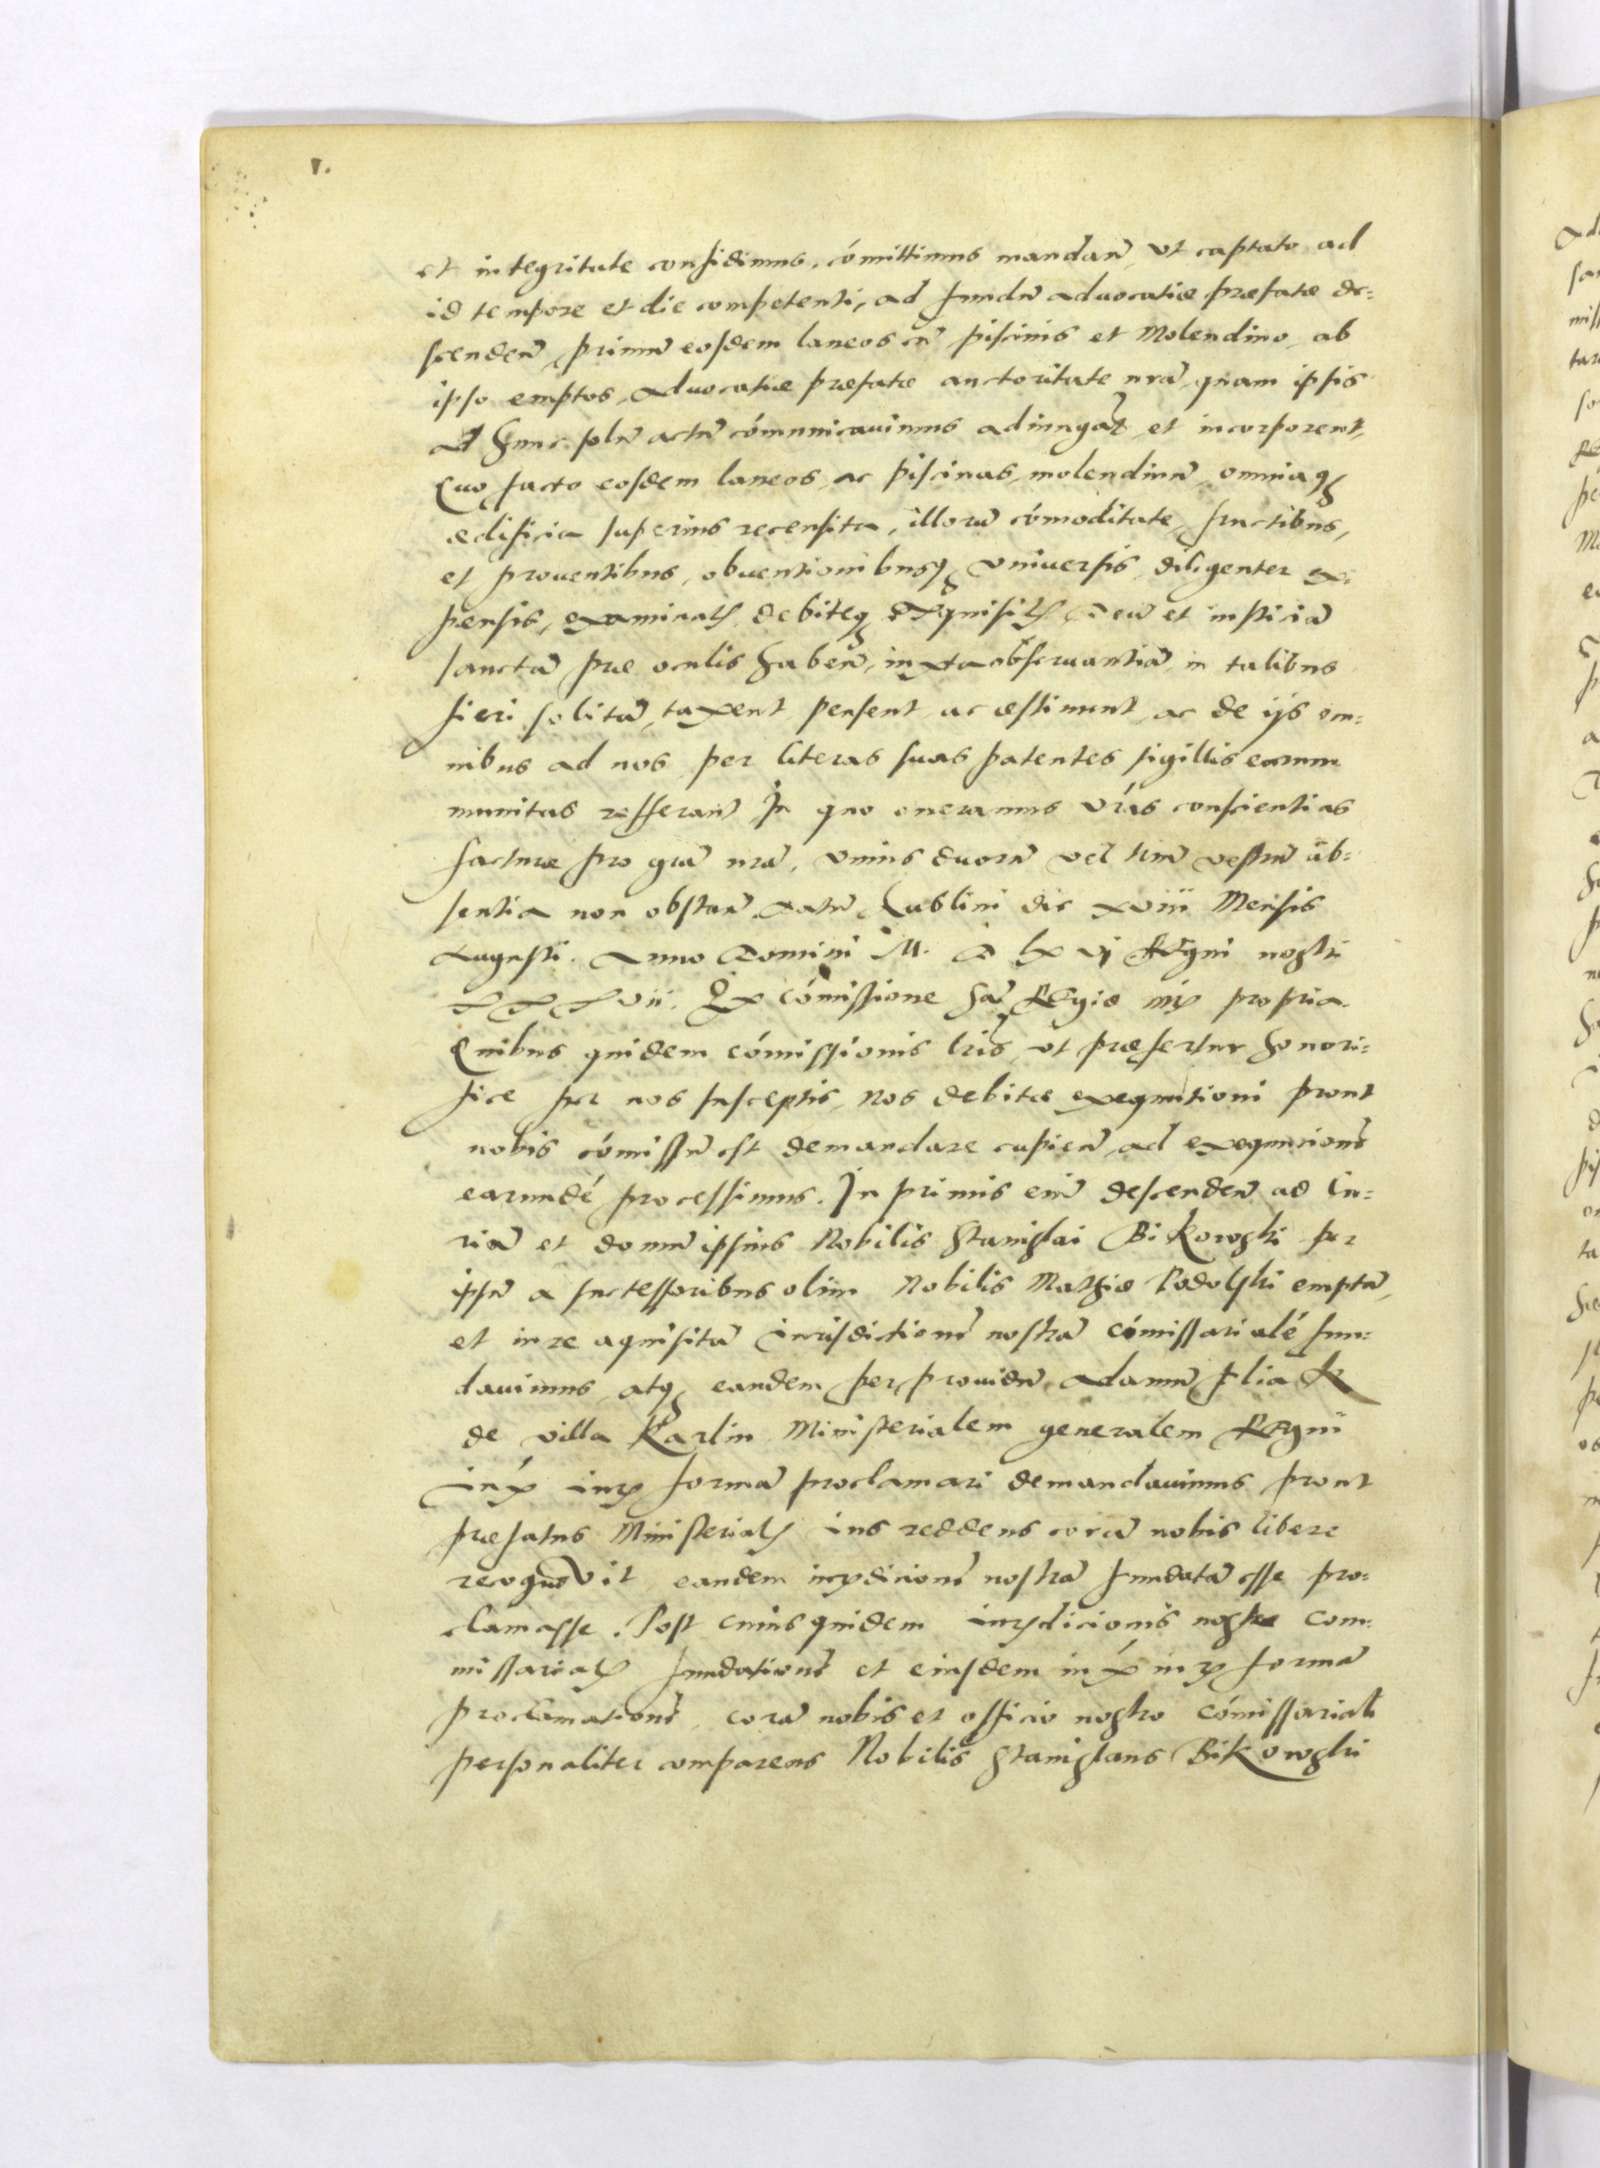 v.
et integritate confidimus, cómittimus mandañ, ut captato ad
id tempore et die competenti, ad fundũ advocatiæ præfatæ de=
scendeñ, primũ eosdem laneos cũ piscinis et Molendino, ab
ipso emptos, advocatiæ præfatæ auctoritate nrã, quam ipsis
ad hunc solũ actũ cómunicavimus adiungãt et incorporent,
Quo facto eosdem laneos, ac piscinas, molendinũ, omniaq3
ædificia superius recensita, illorũ cómoditate, fructibus,
et proventibus, obventionibusq3 universis, diligenter ex=
pensis, examinatis, debiteq3 exquisitis Deũ et iusticiã
sanctã præ oculis habeñ, iuxta observantiã in talibus
fieri solitã, taxent pensent ac æstiment, ac de ijs om=
nibus ad nos per literas suas patentes sigillis eorum
munitas refferant In quo oneramus vrás conscientias
facturæ pro grã nrã, unius duorũ vel triũ vestrũ ab=
sentia non obstañ. Datũ Lublini die xviii Mensis
Augusti. Anno Domini M. D lx vi Regni nostri
xxxvii. Ex cómissione Sac̃ Regiæ propria
Quibus quidem cómissionis lris̃, ut præfertur honori=
fice per nos susceptis, nos debitæ exequutioni prout
nobis cómissũ est demandare cupieñ, ad exequucionẽ
earundé processimus. In primis eñi descendeñ ad Cu=
riã et domũ ipsius Nobilis Stanislai Bikowski per
ipsũ a successoribus olim Nobilis Mathiæ Podolski emptã,
et iure aquisitã iurisdictionẽ nostrã cómissarialé fun=
davimus, atq3 eandem per providũ Adamũ
de villa Karlin Ministerialem generalem Regni
iux́ iur formã proclamari demandavimus prout
præfatus Ministerialis ius reddens corã nobis libere
recognovit eandem iurdicionẽ nostrã fundatã esse pro=
clamasse. Post cuius quidem iurdicionis nostræ com=
missarialis fundationẽ et eiusdem iux́ iur formã
proclamationẽ, corã nobis et officio nostro cómissariali
personaliter comparens Nobilis Stanislaus Bikowski